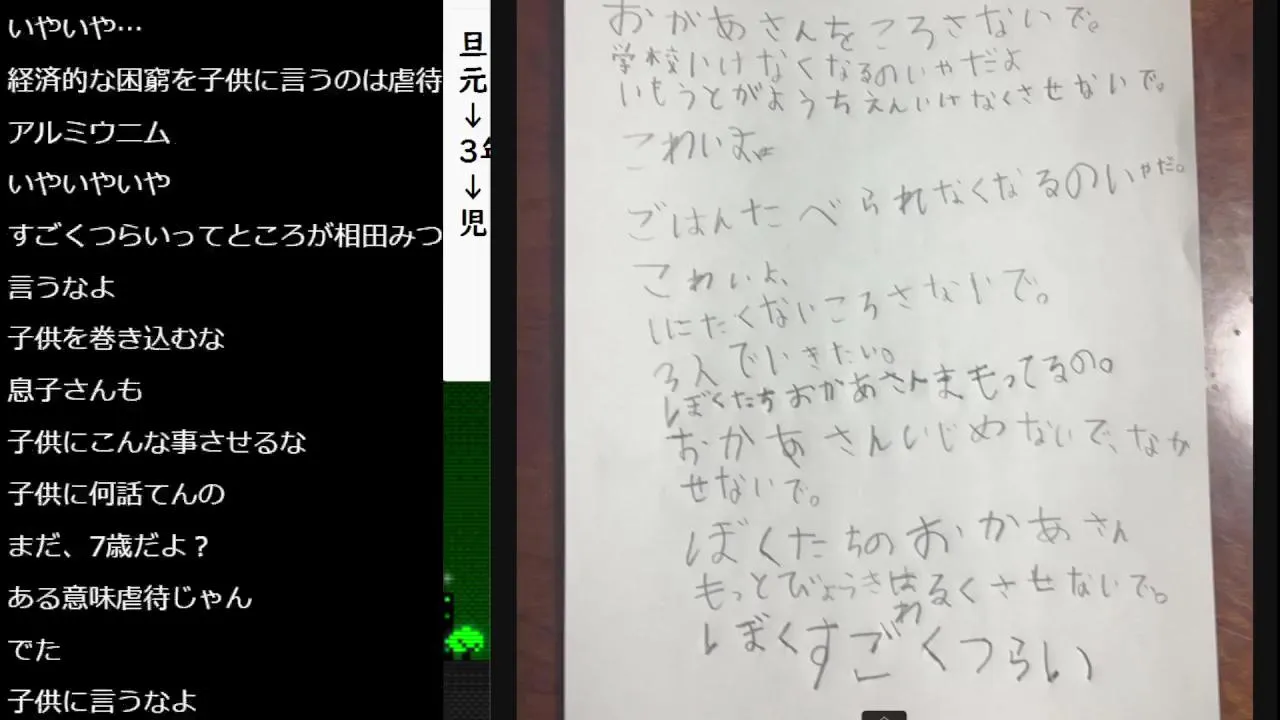 いやいや…
経済的な困窮を子供に言うのは虐待
アルミウニム
いやいやいや
すごくつらいってところが相田みつ
言うなよ
子供を巻き込むな
息子さんも
子供にこんな事させるな
子供に何話てんの
まだ、7歳だよ？
ある意味虐待じゃん
でた
子供に言うなよ
旦
元
↓
3年
↓
児
おかあさんをころさないで。
学校いけなくなるのいやだよ
いもうとがようちえんいけなくさせないで。
こわいよ
ごはんたべられなくなるのいやだ。
こわいよ、
しにたくないころさないで。
3人でいきたい。
ぼくたちおかあさんまもってるの。
おかあさんいじめないで、なか
せないで。
ぼくたちのおかあさん
もっとびょうきわるくさせないで。
ぼくすごくつらい